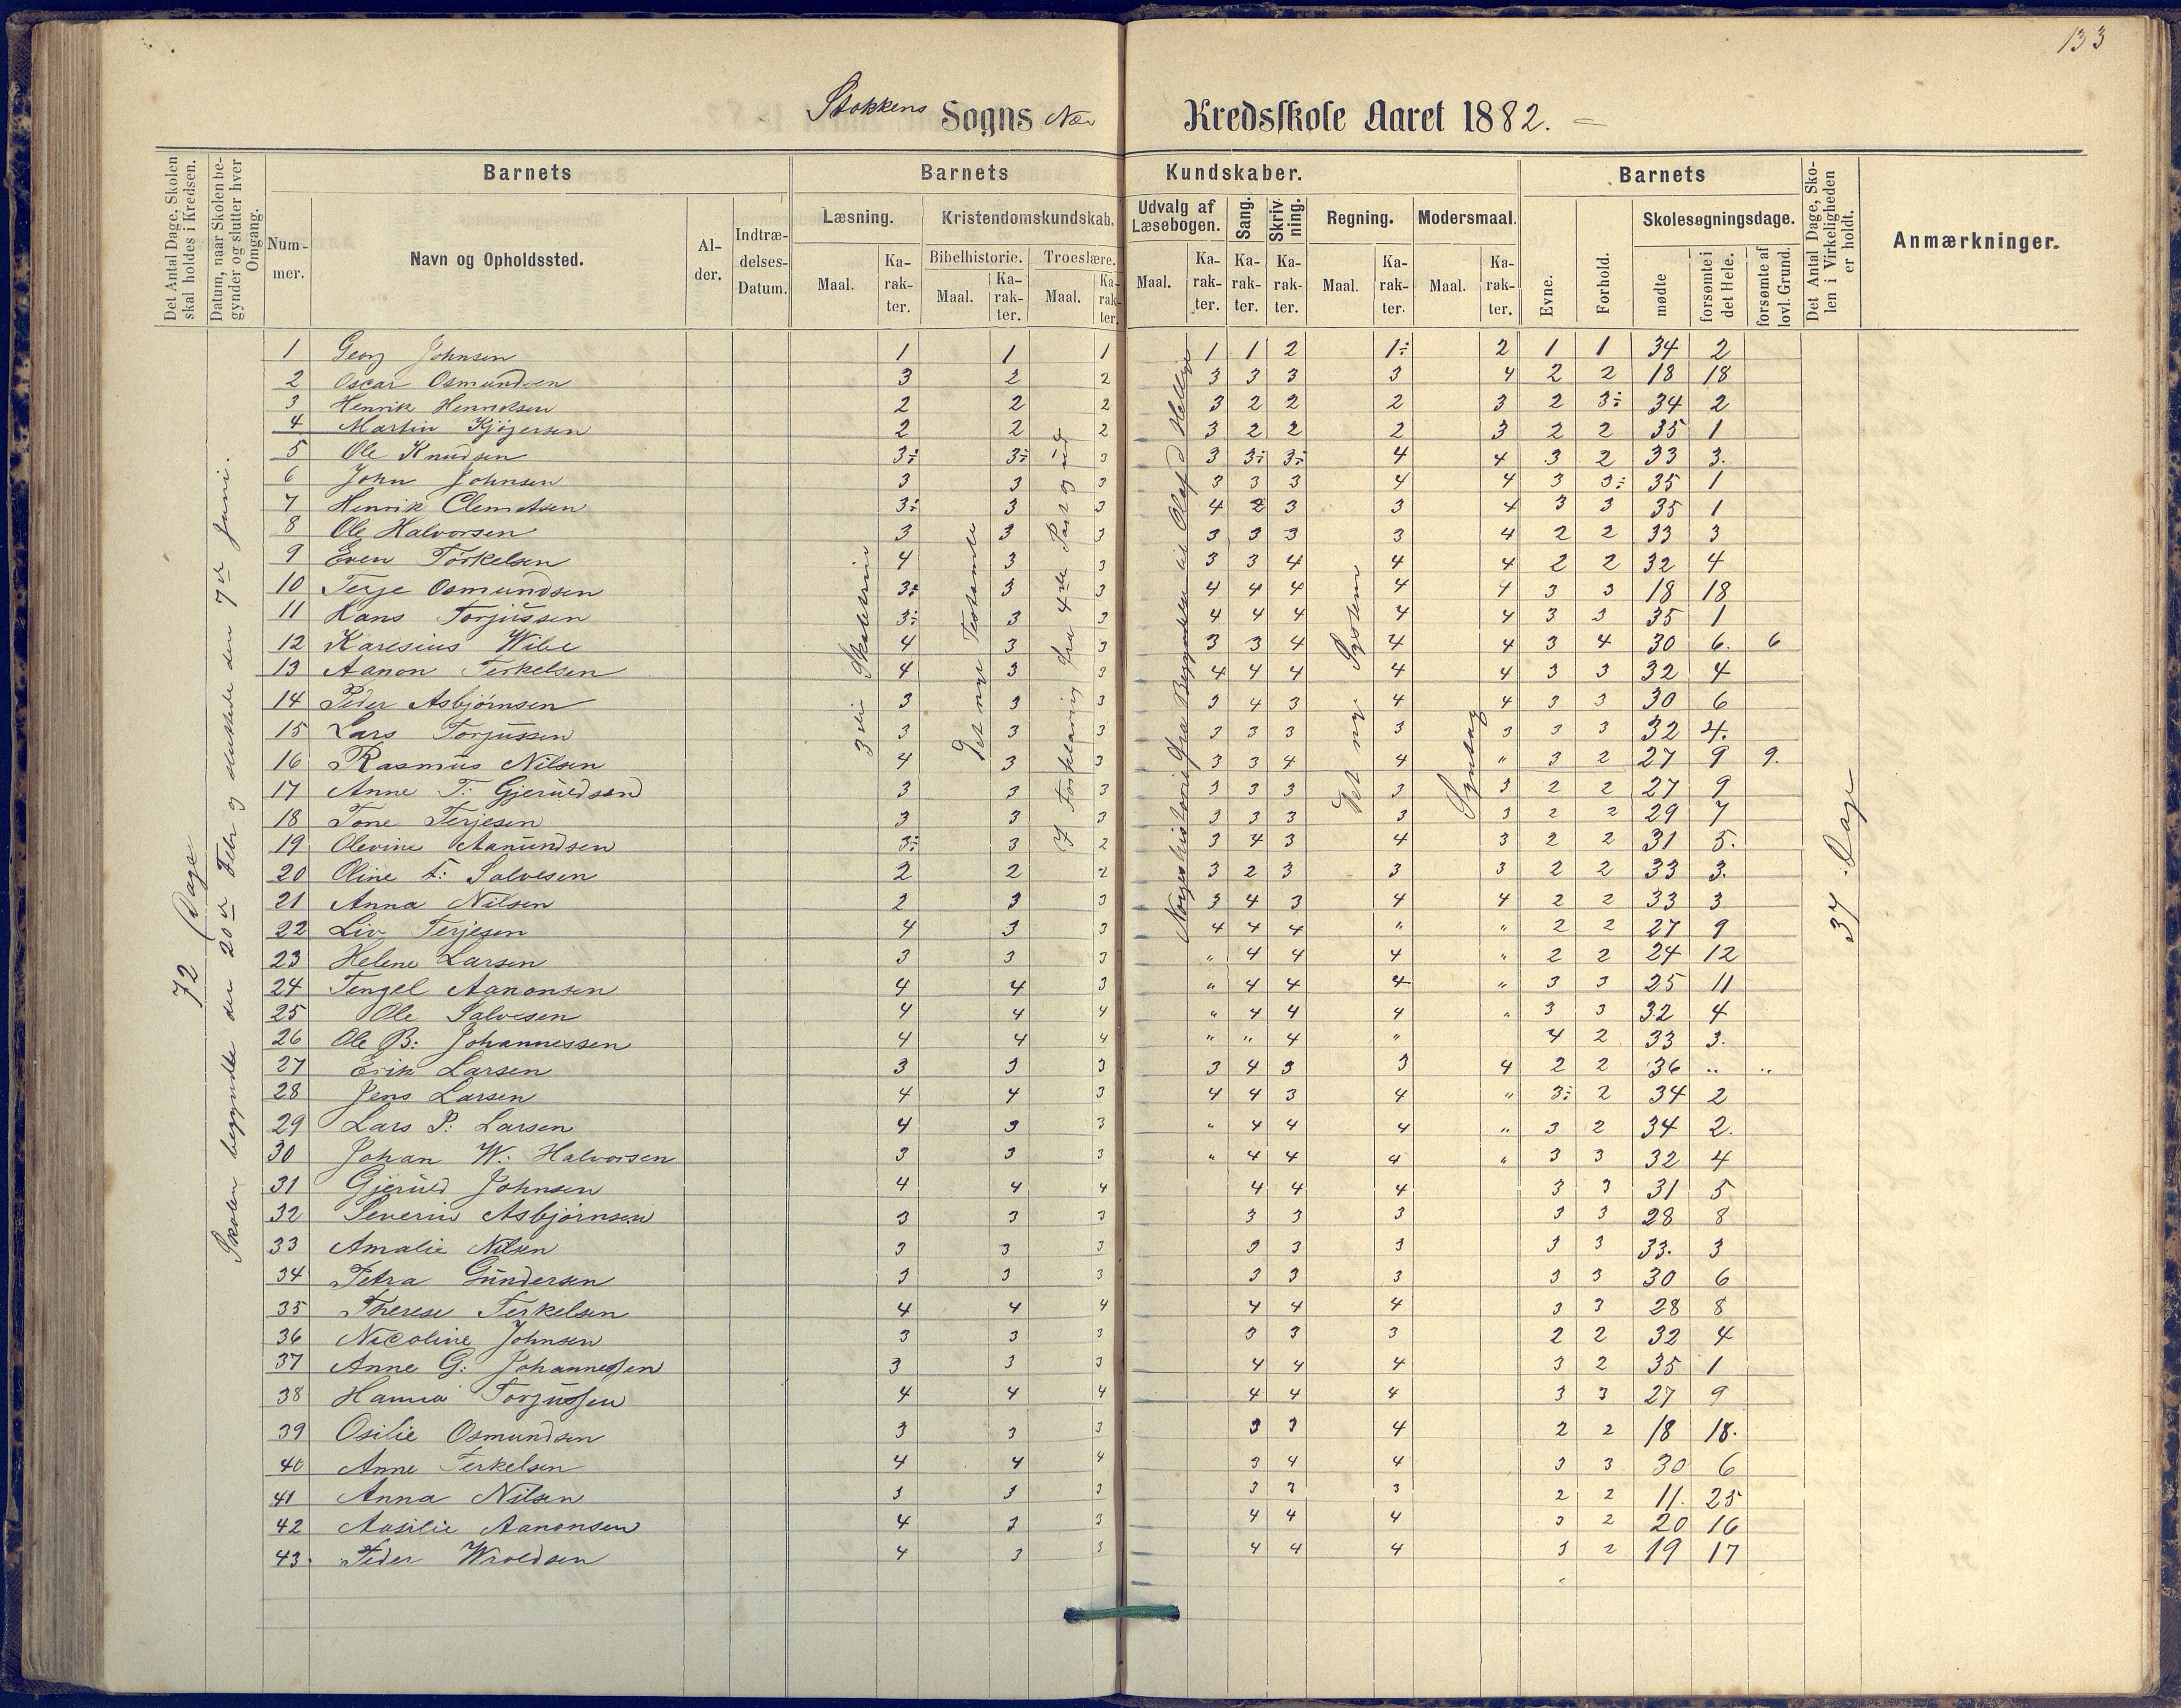 133
Stokkens Sogns Næs Kredsskole Aaret 1882.
Det Antal Dage, Skolen skal holdes i Kredsen.
Datum, naar Skolen begynder og slutter hver Omgang.
Barnets
Nummer.
Navn og Opholdssted.
Alder.
Indtrædelses-Datum.
Barnets Kundskaber.
Læsning.
Maal.
Karakter.
Kristendomskundskab.
Bibelhistorie.
Maal.
Karakter.
Troeslære.
Maal.
Karakter.
Udvalg af Læsebogen.
Maal.
Karakter.
Sang.
Karakter.
Skrivning.
Karakter.
Regning.
Maal.
Karakter.
Modersmaal.
Maal.
Karakter.
Barnets
Evne.
Forhold.
Skolesøgningsdage.
mødte
forsømte i det Hele.
forsømte af lovl. Grund.
Det Antal Dage, Skolen i Virkeligheden er holdt.
Anmærkninger.
72 Dage
Skolen begyndte den 20de Febr og sluttede den 7de Juni.
3die Skoletrin
Det nye Testamente
I Forklaring fra 4de Part og ud
Norgeshistorie fra Begyndelsen til Olaf d Hellige
Det nye System
Syntax
37 Dage
1 Georg Johnsen 1 1 1 1 1 2 1÷ 2 1 1 34 2
2 Oscar Osmundsen 3 2 2 3 3 3 3 4 2 2 18 18
3 Henrik Henriksen 2 2 2 3 2 2 2 3 2 3÷ 34 2
4 Martin Kjøgersen 2 2 2 3 2 2 2 3 2 2 35 1
5 Ole Knudsen 3÷ 3÷ 3 3 3÷ 3÷ 4 4 3 2 33 3.
6 John Johnsen 3 3 3 3 3 3 4 4 3 3÷ 35 1
7 Henrik Clemetsen 3÷ 3 3 4 2 3 3 4 3 3 35 1
8 Ole Halvorsen 3 3 3 3 3 3 3 4 2 2 33 3
9 Even Torkelsen 4 3 3 3 3 4 4 4 2 2 32 4
10 Terje Osmundsen 3÷ 3 3 4 4 4 4 4 3 3 18 18
11 Hans Torjussen 3÷ 3 3 4 4 4 4 4 3 3 35 1
12 Karesius Wibe 4 3 3 3 3 4 4 4 3 4 30 6. 6
13 Aanon Terkelsen 4 3 3 4 4 4 4 4 3 3 32 4
14 Peder Asbjørnsen 3 3 3 3 4 3 4 4 3 3 30 6
15 Lars Torjussen 3 3 3 3 3 3 3 3 3 3 32 4.
16 Rasmus Nilsen 4 3 3 3 3 4 4 " 3 2 27 9 9.
17 Anne T: Gjeruldsend 3 3 3 3 3 3 3 3 2 2 27 9
18 Tone Terjesen 3 3 3 3 3 3 3 3 2 2 29 7
19 Olevine Aanundsen 3÷ 3 2 3 4 3 4 3 2 2 31 5.
20 Oline T: Salvesen 2 2 2 3 2 3 3 3 2 2 33 3.
21 Anna Nilsen 2 3 3 3 4 3 4 4 2 2 33 3
22 Liv Terjesen 4 3 3 4 4 4 " " 2 2 27 9
23 Helene Larsen 3 3 3 " 4 4 4 " 2 2 24 12
24 Tengel Aanonsen 4 4 3 " 4 4 4 " 3 3 25 11
25 Ole Salvesen 4 4 4 " 4 4 4 " 3 3 32 4
26 Ole B: Johannessen 4 4 4 " " 4 " 4 2 33 3.
27 Erik Larsen 3 3 3 3 4 3 3 4 2 2 36 " "
28 Jens Larsen 4 4 3 4 4 3 4 " 3÷ 2 34 2
29 Lars P: Larsen 4 3 3 " 4 4 4 " 3 2 34 2.
30 Johan W. Halvorsen 3 3 3 " 4 4 4 " 3 3 32 4
31 Gjeruld Johnsen 4 4 4 4 4 4 3 3 31 5
32 Severin Asbjørnsen 3 3 3 3 3 3 3 3 28 8
33 Amalie Nilsen 3 3 3 3 3 3 3 3 33. 3
34 Petra Gundersen 3 3 3 3 3 3 3 3 30 6
35 Therese Terkelsen 4 4 4 4 4 4 3 3 28 8
36 Nicoline Johnsen 3 3 3 3 3 3 2 2 32 4
37 Anne G: Johannessen 3 3 3 4 4 4 3 2 35 1
38 Hanna Torjussen 4 4 4 4 4 4 3 3 27 9
39 Osilie Osmundsen 3 3 3 3 3 4 2 2 18 18.
40 Anne Terkelsen 4 4 4 3 4 4 3 3 30 6
41 Anna Nilsen 3 3 3 3 3 3 2 2 11. 25
42 Aasilie Aanonsen 4 3 3 4 4 4 3 2 20 16
43. Peder Wroldsen 4 3 3 4 4 4 3 2 19 17